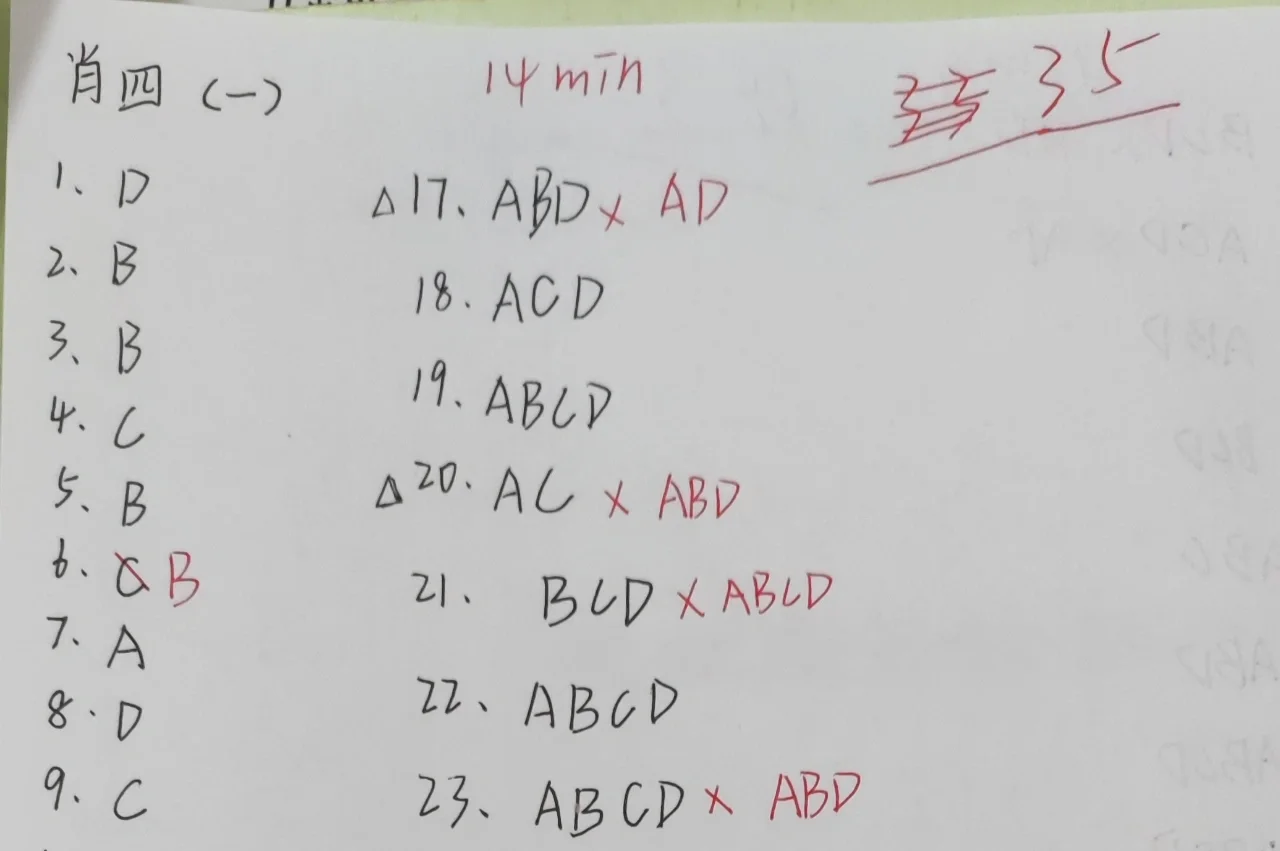 肖四 (一) 14min 35
1、D
2、B
3、B
4. C
5、B
6. C B
7. A
8. D
9. C
△17、ABD × AD
18. ACD
19. ABCD
△20. AC × ABD
21. BCD × ABCD
22、ABCD
23、ABCD × ABD